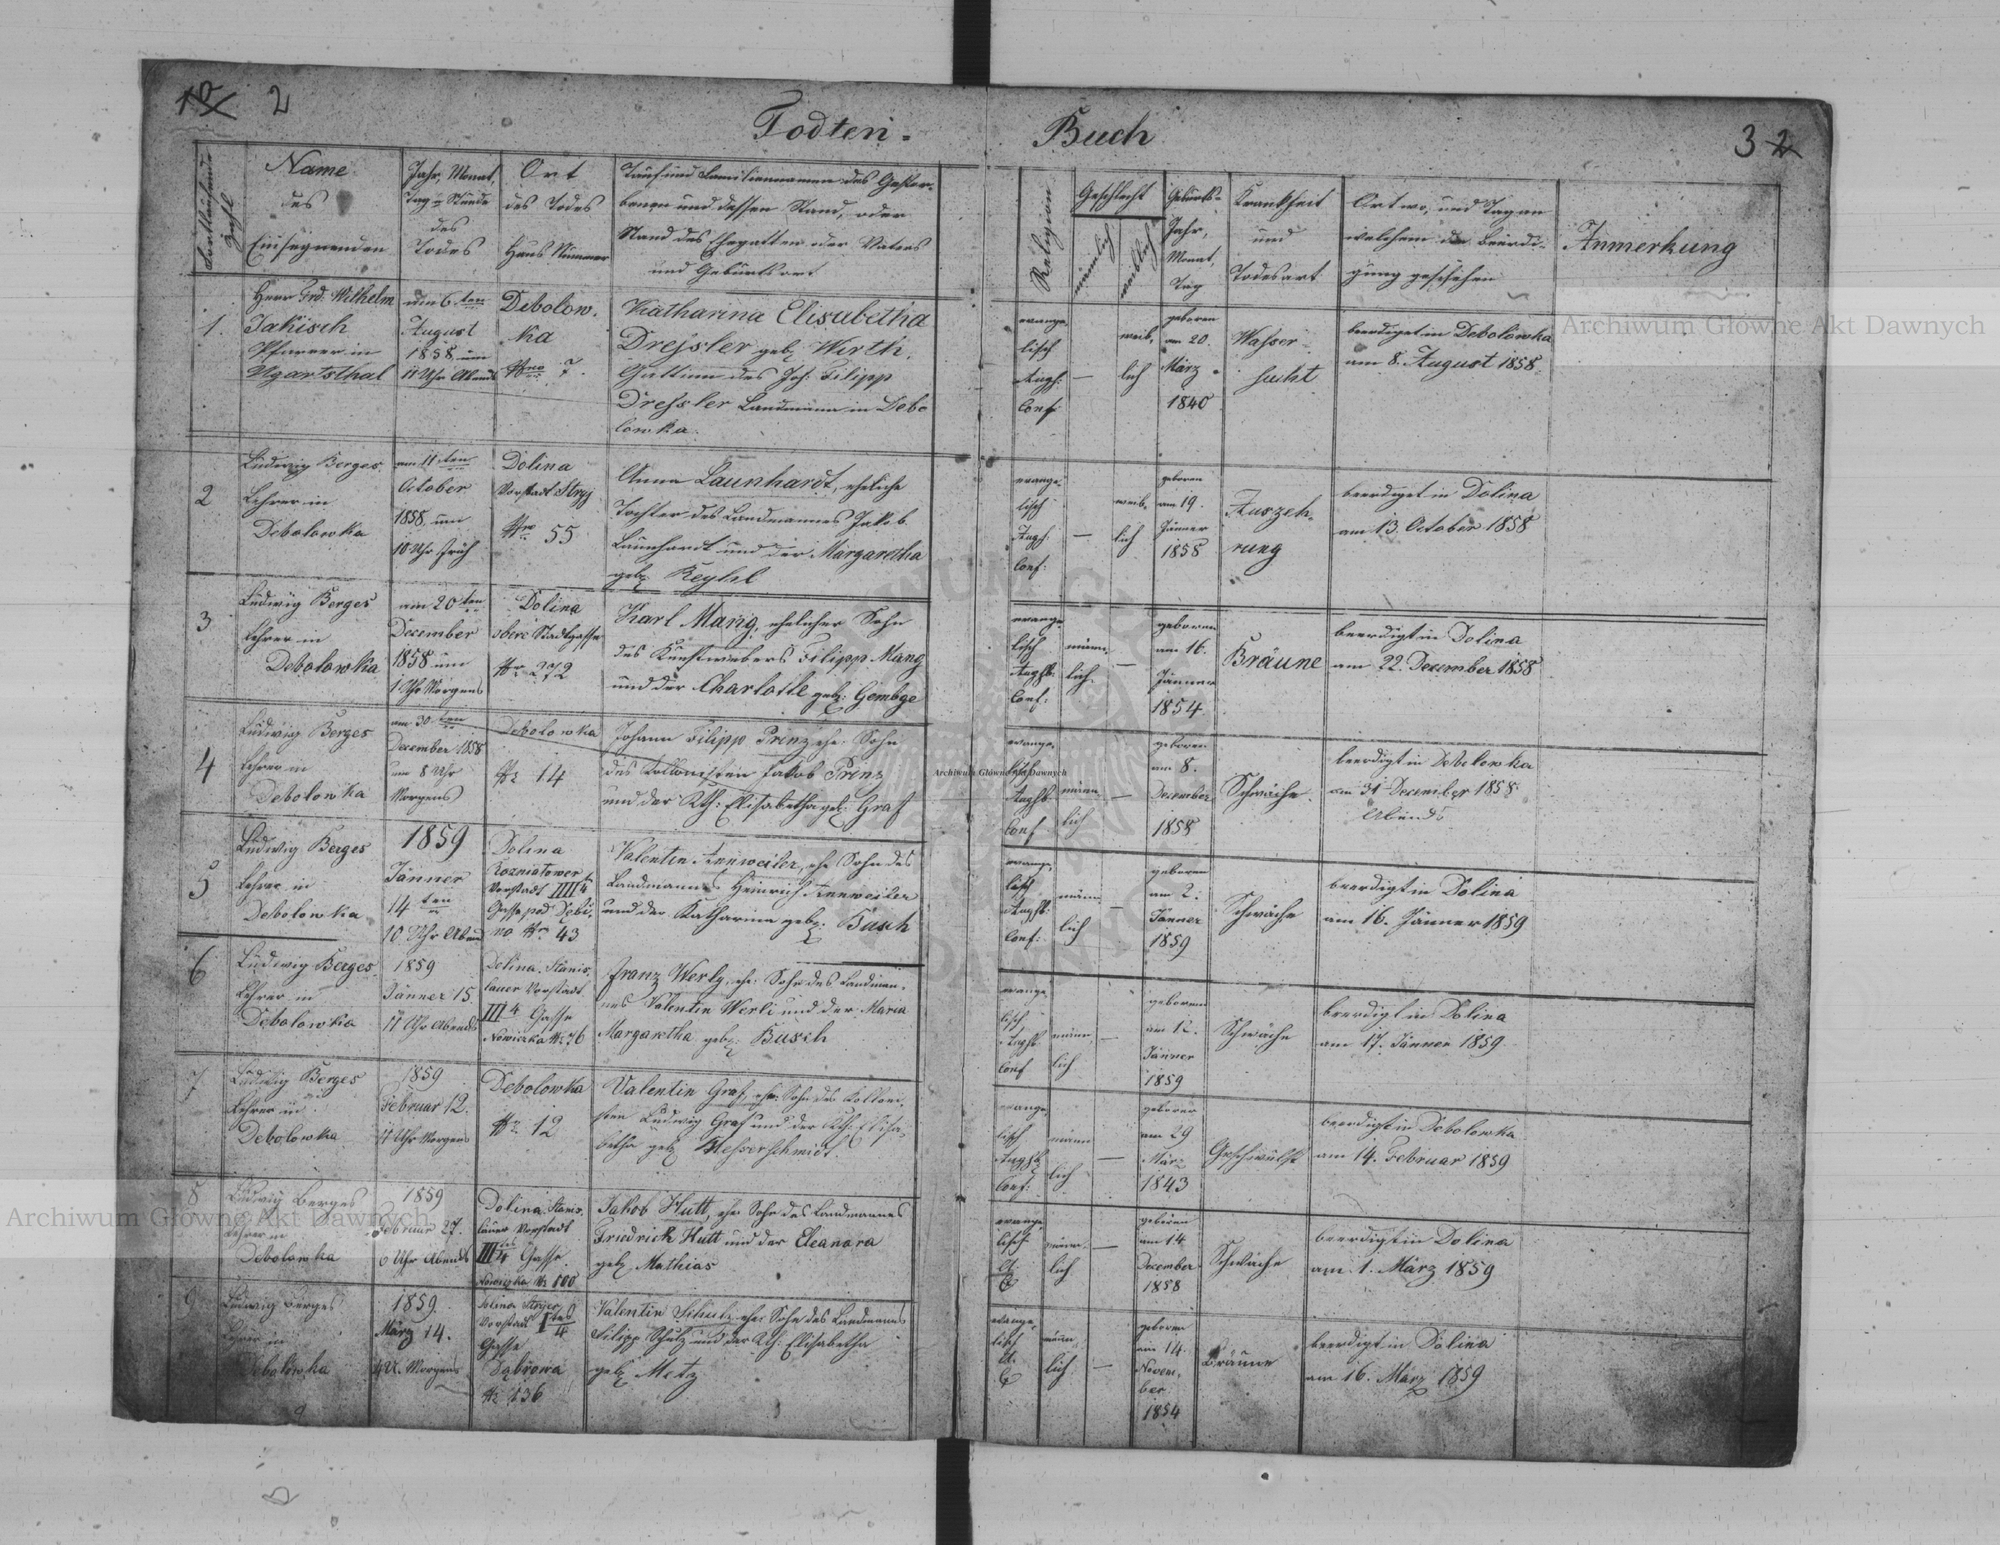 2
Todten-
Buch
3
Fortlaufende Zahl
Name
des
Einsegnenden
Jahr, Monat,
Tag u Stunde
des
Todes
Ort
des Todes
Haus Nummer
Tauf und Familiennamen des Gestor-
benen und dessen Stand, oder
Stand des Ehegatten oder Vaters
und Geburtsort
Religion
Geschlecht
männlich
weiblich
Geburts-
Jahr,
Monat,
Tag
Krankheit
und
Todesart
Ort wo, und Tag an
welchem die Beerdi-
gung geschehen
Anmerkung
1.
Herr Frd. Wilhelm
Jakisch
Pfarrer in
Ugartsthal
am 6ten
August
1858 um
11 Uhr Abends
Debolow-
ka
Nro 7.
Katharina Elisabetha
Dressler geb. Wirth,
Gattinn des Joh: Filipp
Dressler Landmann in Debo
lowka.
evange-
lisch
Augs:
Conf
—
weib-
lich
geboren
am 20.
März
1840
Wasser-
sucht
beerdiget in Debolowka
am 8. August 1858.
2
Ludwig Berges
Lehrer in
Debolowka
am 11ten
October
1858 um
10 Uhr früh
Dolina
Vorstadt Stryj
Nr 55
Anna Launhardt, eheliche
Tochter des Landmannes Jakob
Launhardt und der Margaretha
geb.
evange-
lisch
Augs.
Conf:
—
weib-
lich
geboren
am 19.
Jänner
1858
Auszeh-
rung
beerdiget in Dolina
am 13 October 1858
3
Ludwig Berges
Lehrer in
Debolowka
am 20ten
December
1858 um
1 Uhr Morgens
Dolina
obere Stadtgasse
Nr 272
Karl Mang, ehelicher Sohn
des Kunstwebers Filipp Mang
und der Charlotte geb: Gembge
evange-
lisch
Augsb.
Conf:
männ-
lich.
—
geboren
am 16.
Jänner
1854
Bräune
beerdigt in Dolina
am 22. December 1858
4
Ludwig Berges
Lehrer in
Debolowka
am 30ten
December 1858
um 8 Uhr
Morgens
Debolowka
Nr 14
Johann Filipp Prinz ehe. Sohn
des Kollonisten Jakob Prinz
und der Kth: Elisabetha geb: Graf
evange-
lisch
Augsb.
Conf
männ-
lich
—
geboren
am 8.
December
1858
Schwäche.
beerdigt in Debolowka
am 31 December 1858
Abends
5
Ludwig Berges
Lehrer in
Debolowka
1859
Jänner
14ten
10 Uhr Abend
Dolina
Rozniatower
Vorstadt IIII 4
Gasse pod Debi-
no Nr 43
Valentin Annweiler, ehe Sohn des
Landmannes Heinrich Annweiler
und der Katharina geb: Busch
evange-
lisch
Augsb.
Conf:
männ-
lich
—
geboren
am 2.
Jänner
1859
Schwäche
beerdigt in Dolina
am 16. Jänner 1859
6
Ludwig Berges
Lehrer in
Debolowka
1859
Jänner 15.
11 Uhr Abends
Dolina. Stanis-
lauer Vorstadt
III 4 Gasse
Nowiczka Nr 76
Franz Werly, ehe: Sohn des Landman-
nes Valentin Werli und der Maria
Margaretha geb: Busch
evange-
lisch
Augsb.
Conf
männ-
lich
—
geboren
am 12.
Jänner
1859
Schwäche
beerdigt in Dolina
am 17. Jänner 1859
7
Ludwig Berges
Lehrer in
Debolowka
1859
Februar 12.
11 Uhr Morgens
Debolowka
Nr 12
Valentin Graf, ehe: Sohn des Kolloni-
sten Ludwig Graf und der Kth: Elisa-
betha geb Messerschmidt
evange-
lisch
Augsb.
Conf:
männ-
lich
—
geboren
am 29
März
1843
Geschwulst
beerdigt in Debolowka
am 14. Februar 1859
8
Ludwig Berges
Lehrer in
Debolowka
1859
Februar 27.
6 Uhr Abends
Dolina, Stanis-
lauer Vorstadt
III/4 Gasse.
Nowiczka Nr 100
Jakob Hutt, ehe Sohn des Landmannes
Friedrich Hutt und der Eleanora
geb Mathias
evange-
lisch
A.
C
männ-
lich
—
geboren
am 14
December
1858
Schwäche
beerdigt in Dolina
am 1. März 1859
9
Ludwig Berges
Lehrer in
Debolowka
1859.
März 14.
4 U. Morgens
Dolina Stryer
Vorstadt Ites/4
Gasse
Dabrowa
Nr 136
Valentin Schulz, ehe: Sohn des Landmanns
Filipp Schulz und der Kth: Elisabetha
geb Metz
evange-
lisch
A.
C
männ-
lich
—
geboren
am 14.
Novem-
ber
1854
Bräune
beerdigt in Dolina
am 16. März 1859
Archiwum Główne Akt Dawnych
Archiwum Główne Akt Dawnych
Archiwum Główne Akt Dawnych